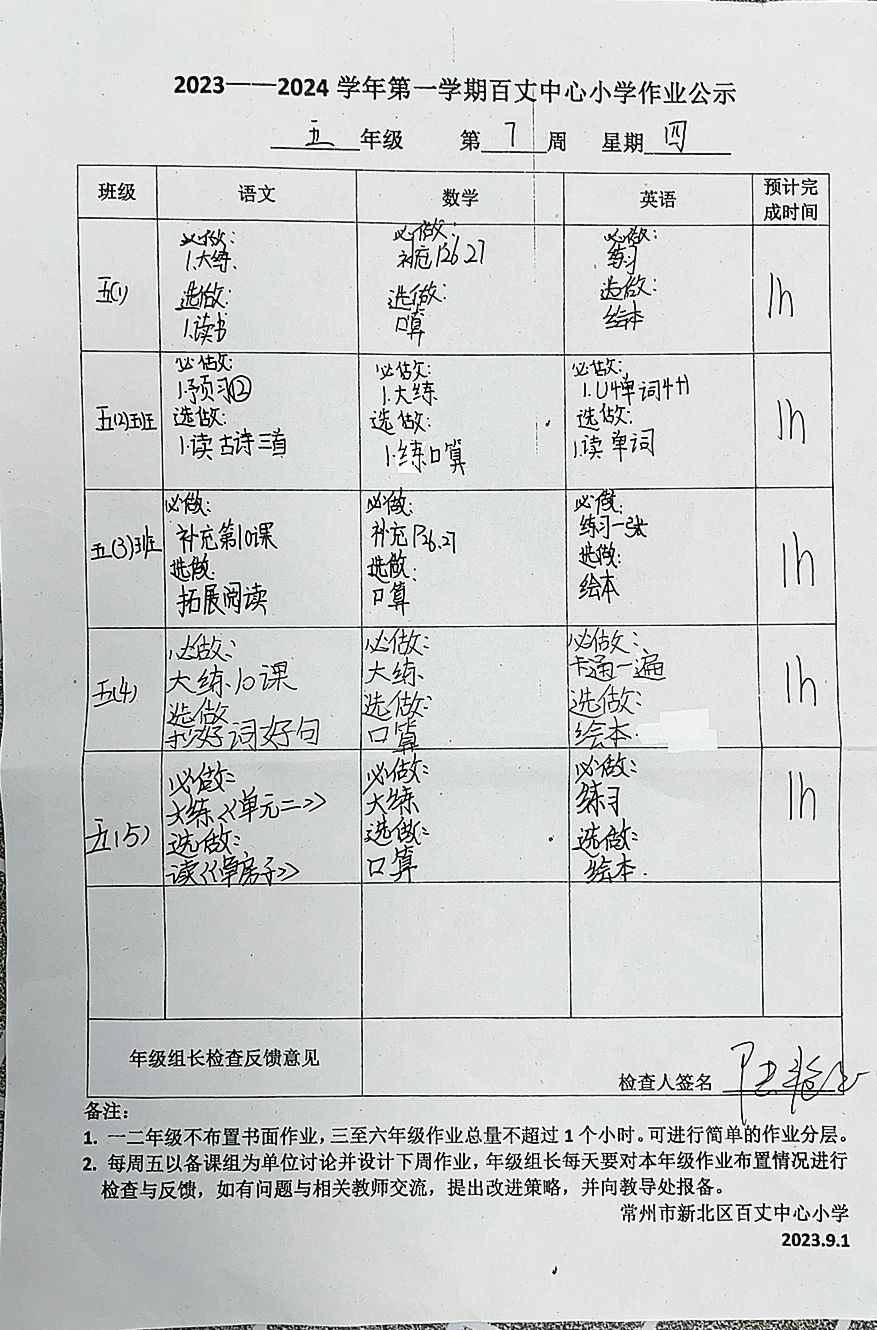 2023——2024 学年第一学期百丈中心小学作业公示
五 年级 第 7 周 星期 四
班级 语文 数学 英语 预计完成时间
五(1)
必做:
1.大练.
选做:
1.读书
必做:
补充P26.27
选做:
口算
必做:
练习
选做:
绘本
1h
五(2)班
必做:
1.预习②
选做:
1.读古诗三首
必做:
1.大练
选做:
1.练口算
必做:
1.U4单词4+1
选做:
1.读单词
1h
五(3)班
必做:
补充第10课
选做:
拓展阅读
必做:
补充P26.27
选做:
口算
必做:
练习一张
选做:
绘本
1h
五(4)
必做:
大练10课
选做
抄好词好句
必做:
大练
选做:
口算
必做:
卡通一遍
选做:
绘本.
1h
五(5)
必做:
大练《单元二》
选做:
读《草房子》
必做:
大练
选做:
口算
必做:
练习
选做:
绘本.
1h
年级组长检查反馈意见
检查人签名
备注:
1. 一二年级不布置书面作业,三至六年级作业总量不超过 1 个小时。可进行简单的作业分层。
2. 每周五以备课组为单位讨论并设计下周作业,年级组长每天要对本年级作业布置情况进行
检查与反馈,如有问题与相关教师交流,提出改进策略,并向教导处报备。
常州市新北区百丈中心小学
2023.9.1